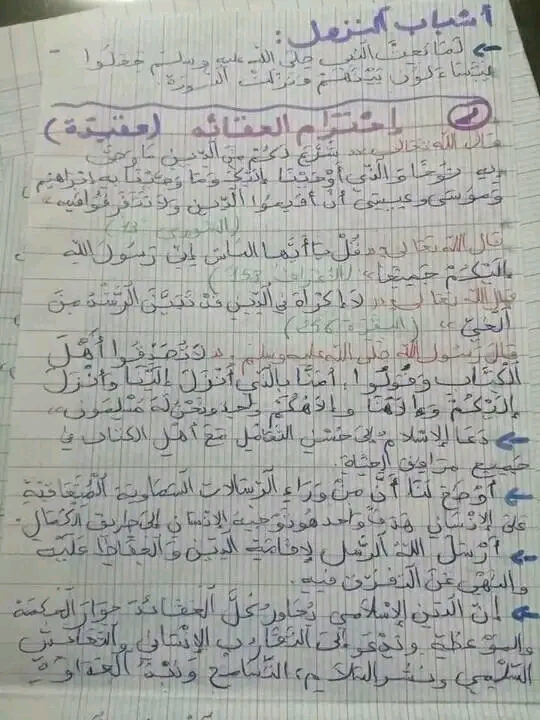 أسباب النزول :
← لما بعث النبي صلى الله عليه وسلم جعلوا
يتساءلون بينهم ونزلت السورة
2 إحترام العقائد (عقيدة)
قال الله تعالى « شَرَعَ لَكُمْ مِنَ الدِّينِ مَا وَصَّى
بِهِ نُوحًا وَالَّذِي أَوْحَيْنَا إِلَيْكَ وَمَا وَصَّيْنَا بِهِ إِبْرَاهِيمَ
وَمُوسَى وَعِيسَى أَنْ أَقِيمُوا الدِّينَ وَلَا تَتَفَرَّقُوا فِيهِ »
(الشورى 13)
قال الله تعالى « قُلْ يَا أَيُّهَا النَّاسُ إِنِّي رَسُولُ اللَّهِ
إِلَيْكُمْ جَمِيعًا » (الأعراف 158)
قال الله تعالى « لَا إِكْرَاهَ فِي الدِّينِ قَدْ تَبَيَّنَ الرُّشْدُ مِنَ
الْغَيِّ » (البقرة 256)
قال رسول الله صلى الله عليه وسلم « لَا تُصَدِّقُوا أَهْلَ
الْكِتَابِ وَقُولُوا : آمَنَّا بِالَّذِي أُنْزِلَ إِلَيْنَا وَأُنْزِلَ
إِلَيْكُمْ وَإِلَاهُنَا وَإِلَاهُكُمْ وَاحِدٌ وَنَحْنُ لَهُ مُسْلِمُونَ »
← دعا الإسلام إلى حسن التعامل مع أهل الكتاب في
جميع مرافق الحياة.
← أوضح لنا أن من وراء الرسالات السماوية المتعاقبة
على الإنسان هدفا واحد هو توجيه الإنسان إلى طريق الكمال.
← أرسل الله الرسل لإقامة الدين والحفاظ عليه
والنهي عن التفرق فيه.
← إن الدين الإسلامي يحاور كل العقائد حوار الحكمة
والموعظة ويدعو إلى التقارب الإنساني والتعايش
السلمي ونشر السلام، التسامح ونبذ العداوة